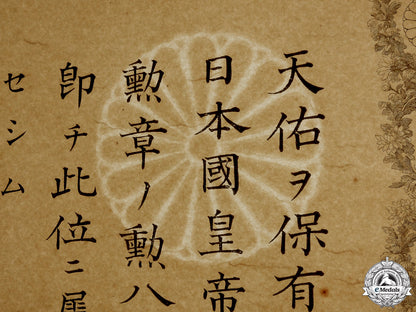 天佑ヲ保有
日本國皇帝
勲章ノ勲八
即チ此位ニ屬
セシム
eMedals